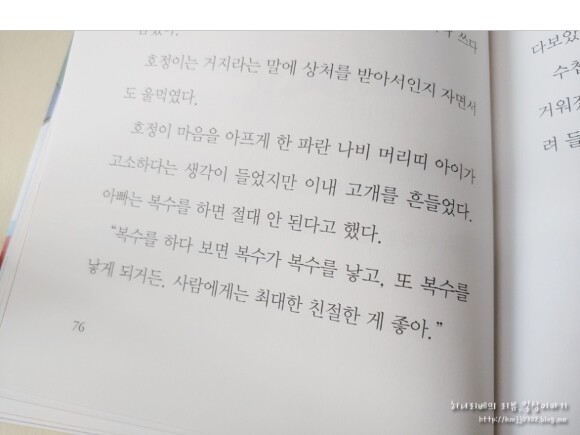 쓰다
호정이는 거지라는 말에 상처를 받아서인지 자면서
도 울먹였다.
호정이 마음을 아프게 한 파란 나비 머리띠 아이가
고소하다는 생각이 들었지만 이내 고개를 흔들었다.
아빠는 복수를 하면 절대 안 된다고 했다.
“복수를 하다 보면 복수가 복수를 낳고, 또 복수를
낳게 되거든. 사람에게는 최대한 친절한 게 좋아.”
76
다보았
수천
거워
려 들